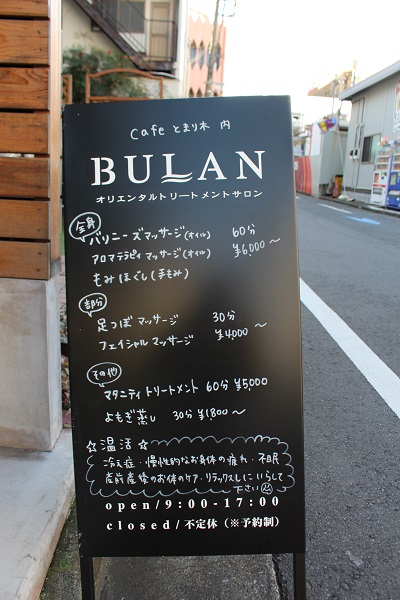 Cafe とまり木 内
BULAN
オリエンタルトリートメントサロン
全身
バリニーズマッサージ(オイル) 60分
アロマテラピィマッサージ(オイル) ¥6,000〜
もみほぐし(手もみ)
部分
足つぼマッサージ 30分
フェイシャルマッサージ ¥4,000〜
その他
マタニティトリートメント 60分 ¥5,000
よもぎ蒸し 30分 ¥1,800〜
☆温活☆
冷え症・慢性的なお身体の疲れ・不眠
産前産後のお体のケア・リラックスしにいらして
下さい
open/9:00-17:00
closed/不定休（※予約制）